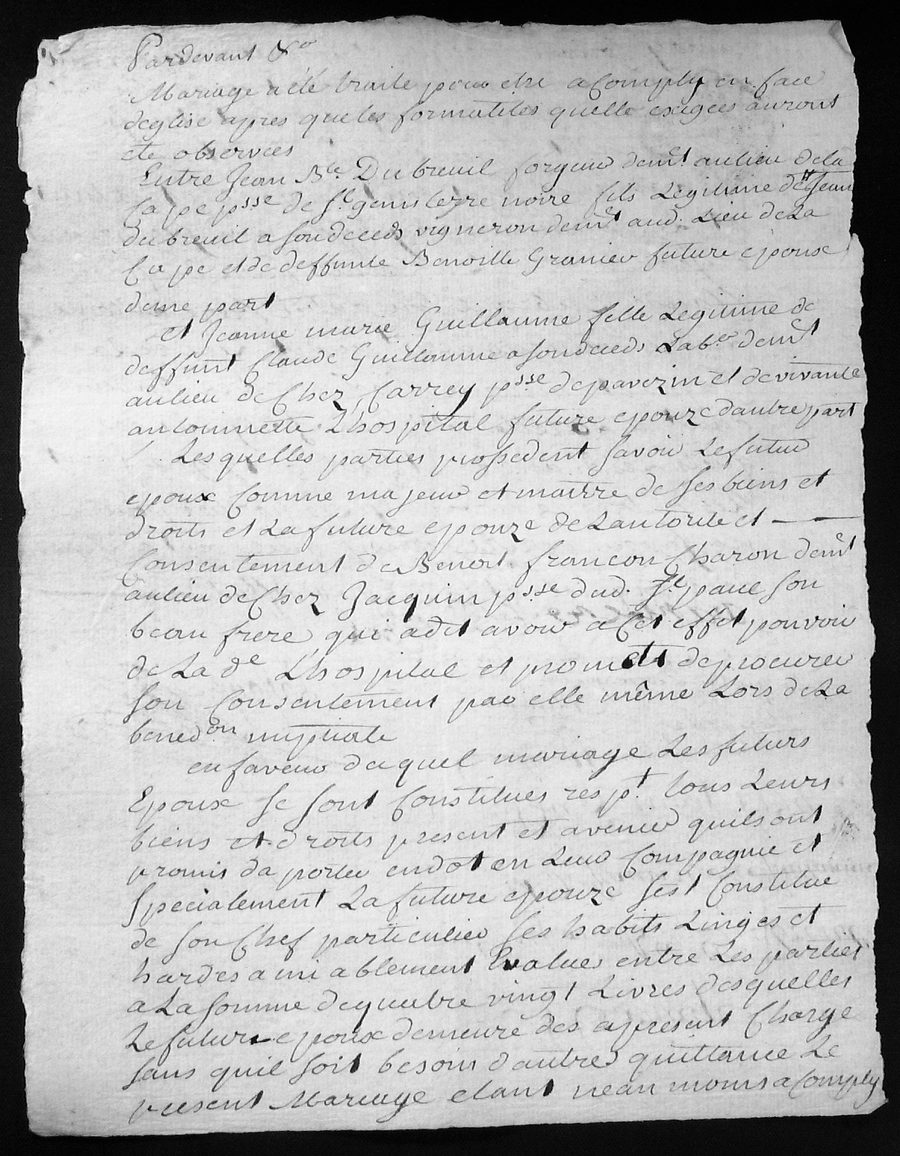 Pardevant &c
Mariage a été traite pour etre acomply en face
deglise apres que les formalités quelle exigées auront
ete observees
Entre Jean Bte Dubreuil forgeur demt au lieu de la
Cape psse de St genis terre noire fils Legitime de Jean
dubreuil a son deceds vigneron demt aud. Lieu de La
Cape et de deffunte Benoitte Granier future epoux
dune part
et Jeanne marie Guillaume fille Legitime de
deffunt Claude Guillaume a son deceds Labr demt
au lieu de Chez Carrey psse de pavezin et de vivante
antoinnette Lhospital future epouze dautre part
Lesquelles parties prossedent savoir Le futur
epoux Comme majeur et maitre de ses biens et
droits et La future epouze de Lautorite et
Consentement de Benoit francon Charon demt
au lieu de Chez Jacquin psse dud. St paul son
beau frere qui a dit avoir a Cet effet pouvoir
de La de Lhospital et promet de procurer
son Consentement par elle même Lors de La
benedon nuptiale
en faveur duquel mariage Les futurs
Epoux se sont Constitues respt. tous Leurs
biens et droits present et avenir quils ont
promis daporter en dot en Leur Compagnie et
specialement La future epouze sest Constitue
de son Chef particulier ses habits Linges et
hardes amiablement Evalues entre Les parties
a La somme de quatre vingt Livres desquelles
Le futur epoux demeure des apresent Charge
sans quil soit besoin dautre quittance Le
present Mariage etant nean moins acomply